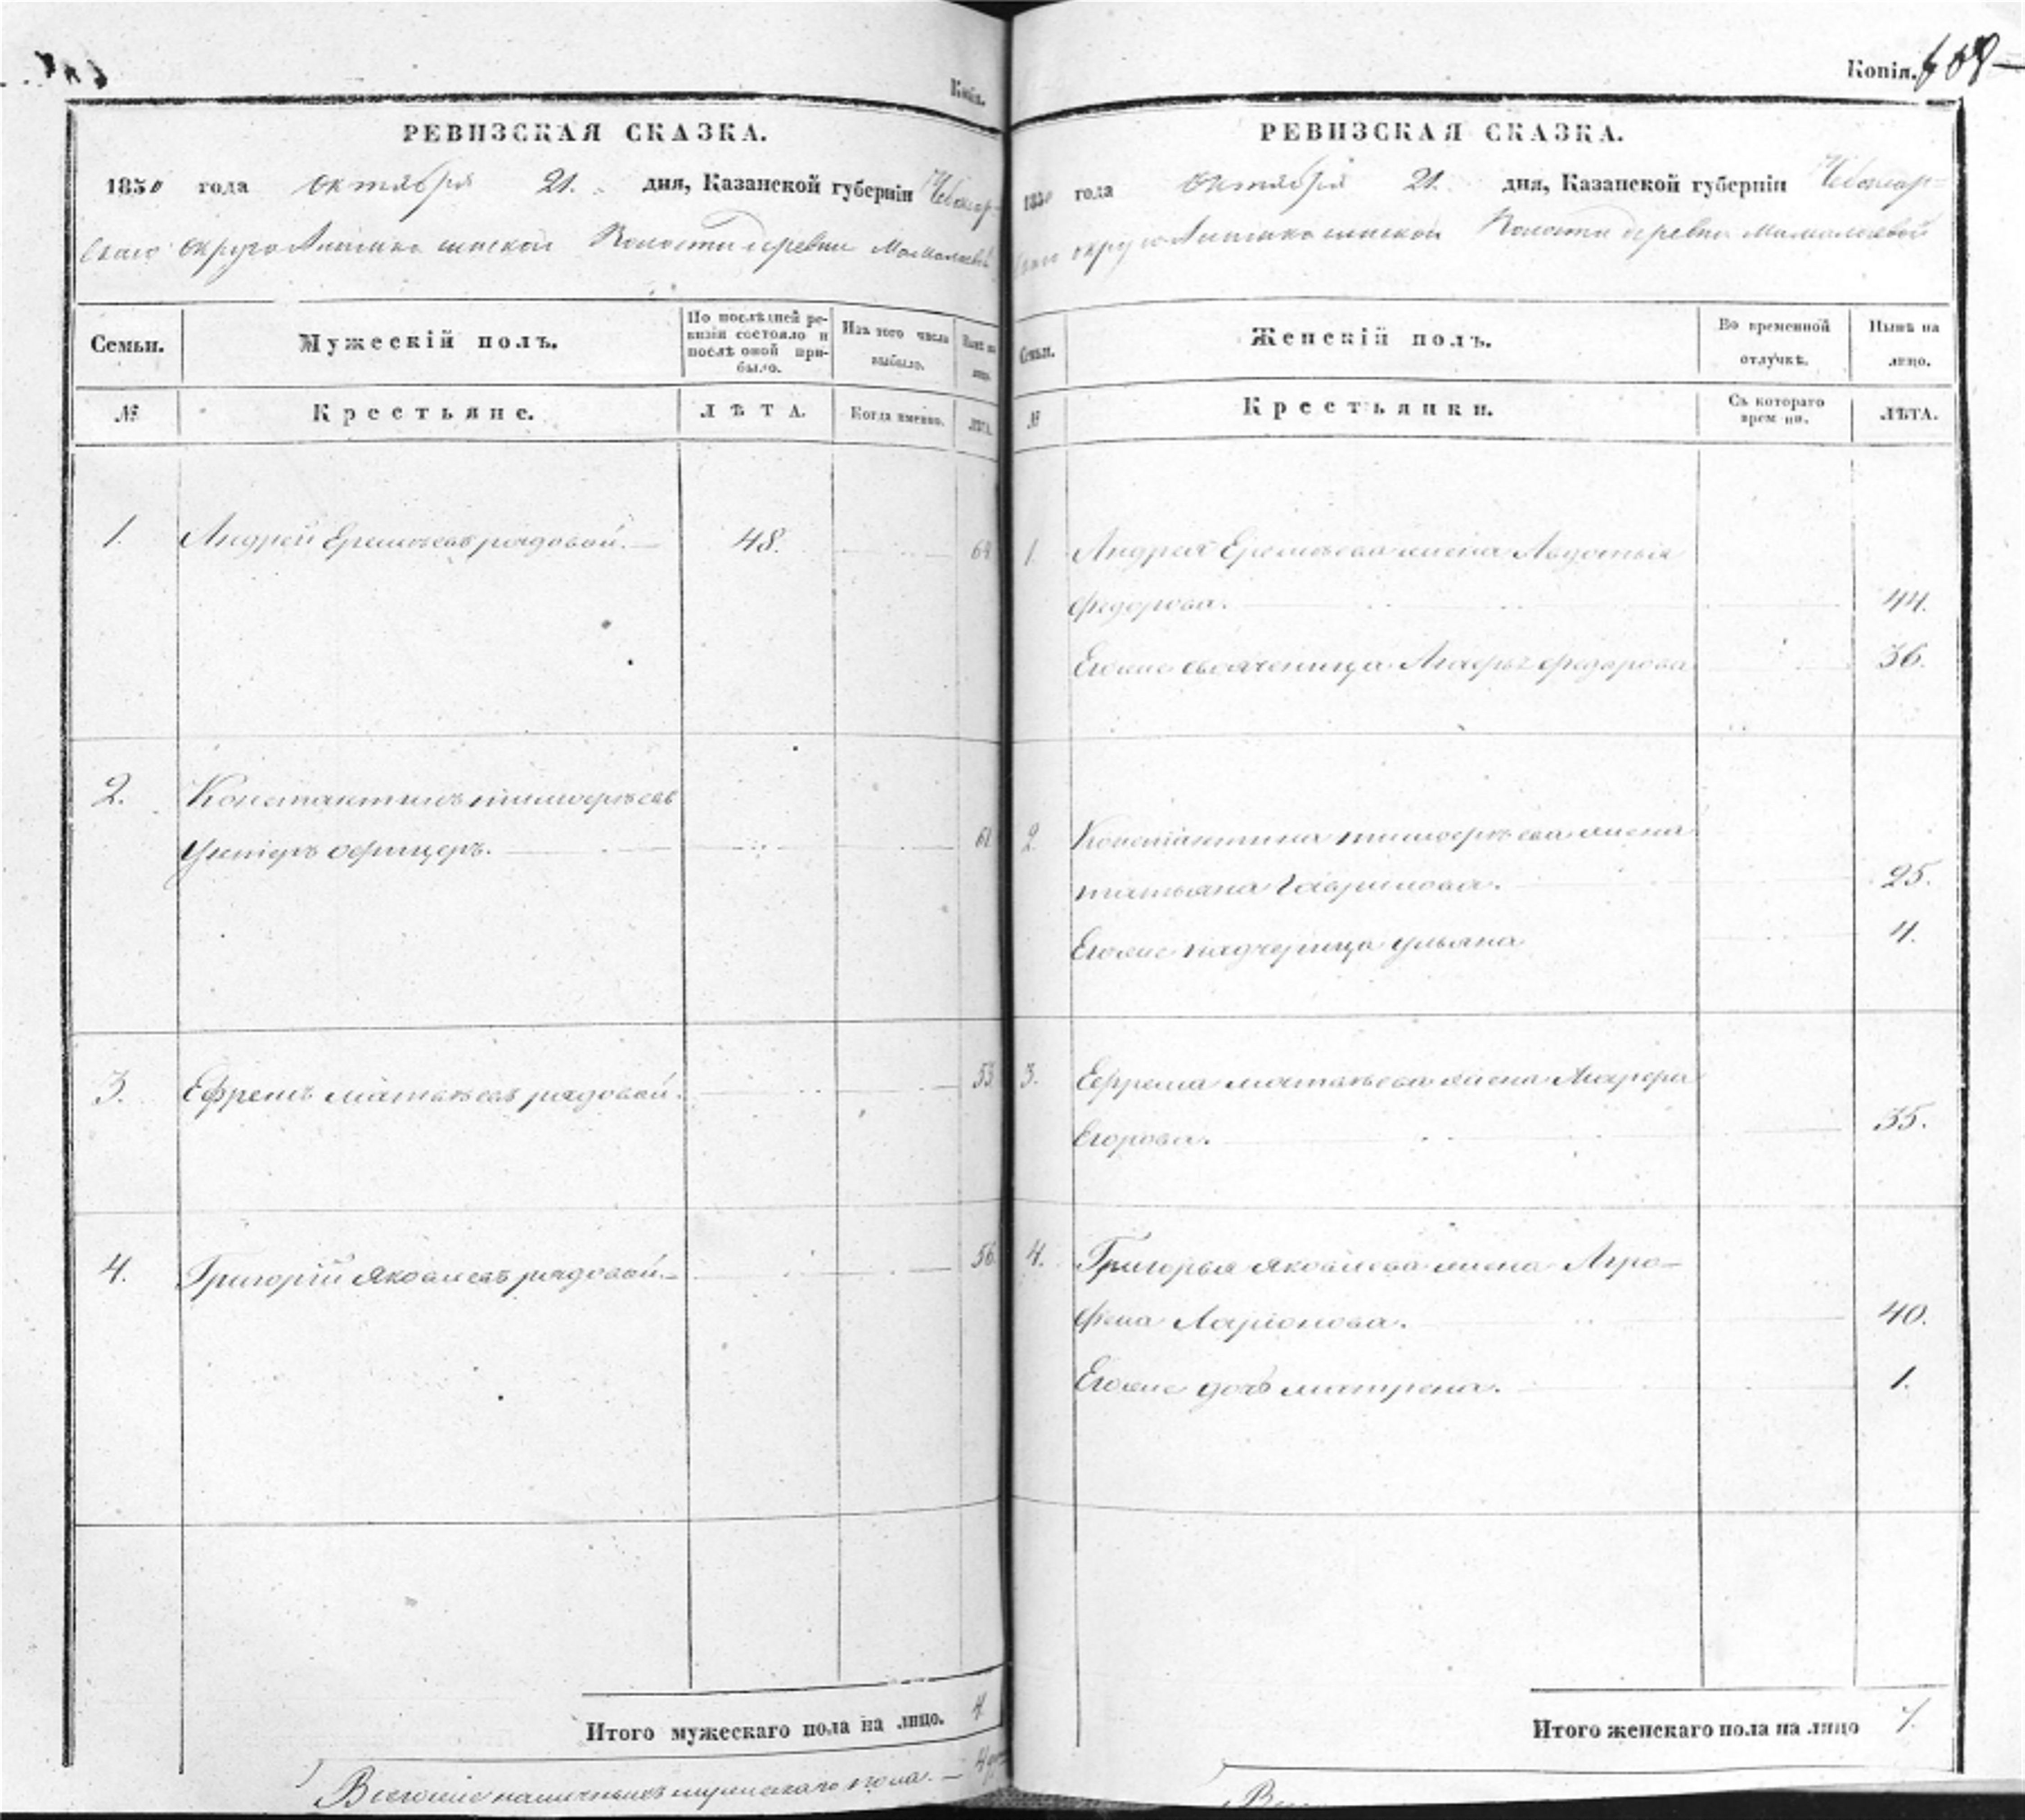 Копія.
РЕВИЗСКАЯ СКАЗКА.
1850 года октября 21. дня, Казанской губерніи Чебоксар-
скаго округа волости деревни
Семьи.
Мужескій полъ.
По послѣдней ре-
визіи состояло и
послѣ оной при-
было.
Изъ того числа
выбыло.
Нынѣ на
лицо.
№
Крестьяне.
ЛѢТА.
Когда именно.
ЛѢТА.
1. Андрей Еремѣевъ рядовой. 48.
2. Константинъ тимофѣевъ
Унтеръ офицеръ. 61
3. Ефремъ матвѣевъ рядовой. 53
4. Григорій яковлевъ рядовой. 56
Итого мужескаго пола на лицо. 4
Всего наличныхъ мужескаго пола.
Копія. 609
РЕВИЗСКАЯ СКАЗКА.
1850 года октября 21. дня, Казанской губерніи Чебоксар-
скаго округа волости деревни
Семьи.
Женскій полъ.
Во временной
отлучкѣ.
Нынѣ на
лицо.
№
Крестьянки.
Съ котораго
времени.
ЛѢТА.
1. Андрея Еремѣева жена Авдотья
федорова. 44.
Егоже свояченица федорова 36.
2 Константина тимофѣева жена
татьяна Гаврилова. 25.
Егоже падчерица ульяна 4.
3. Ефрема матвѣева жена Марфа
Егорова. 35.
4. Григорья яковлева жена Агро-
фена Ларіонова. 40.
Егоже дочь матрена. 1.
Итого женскаго пола на лицо 7.